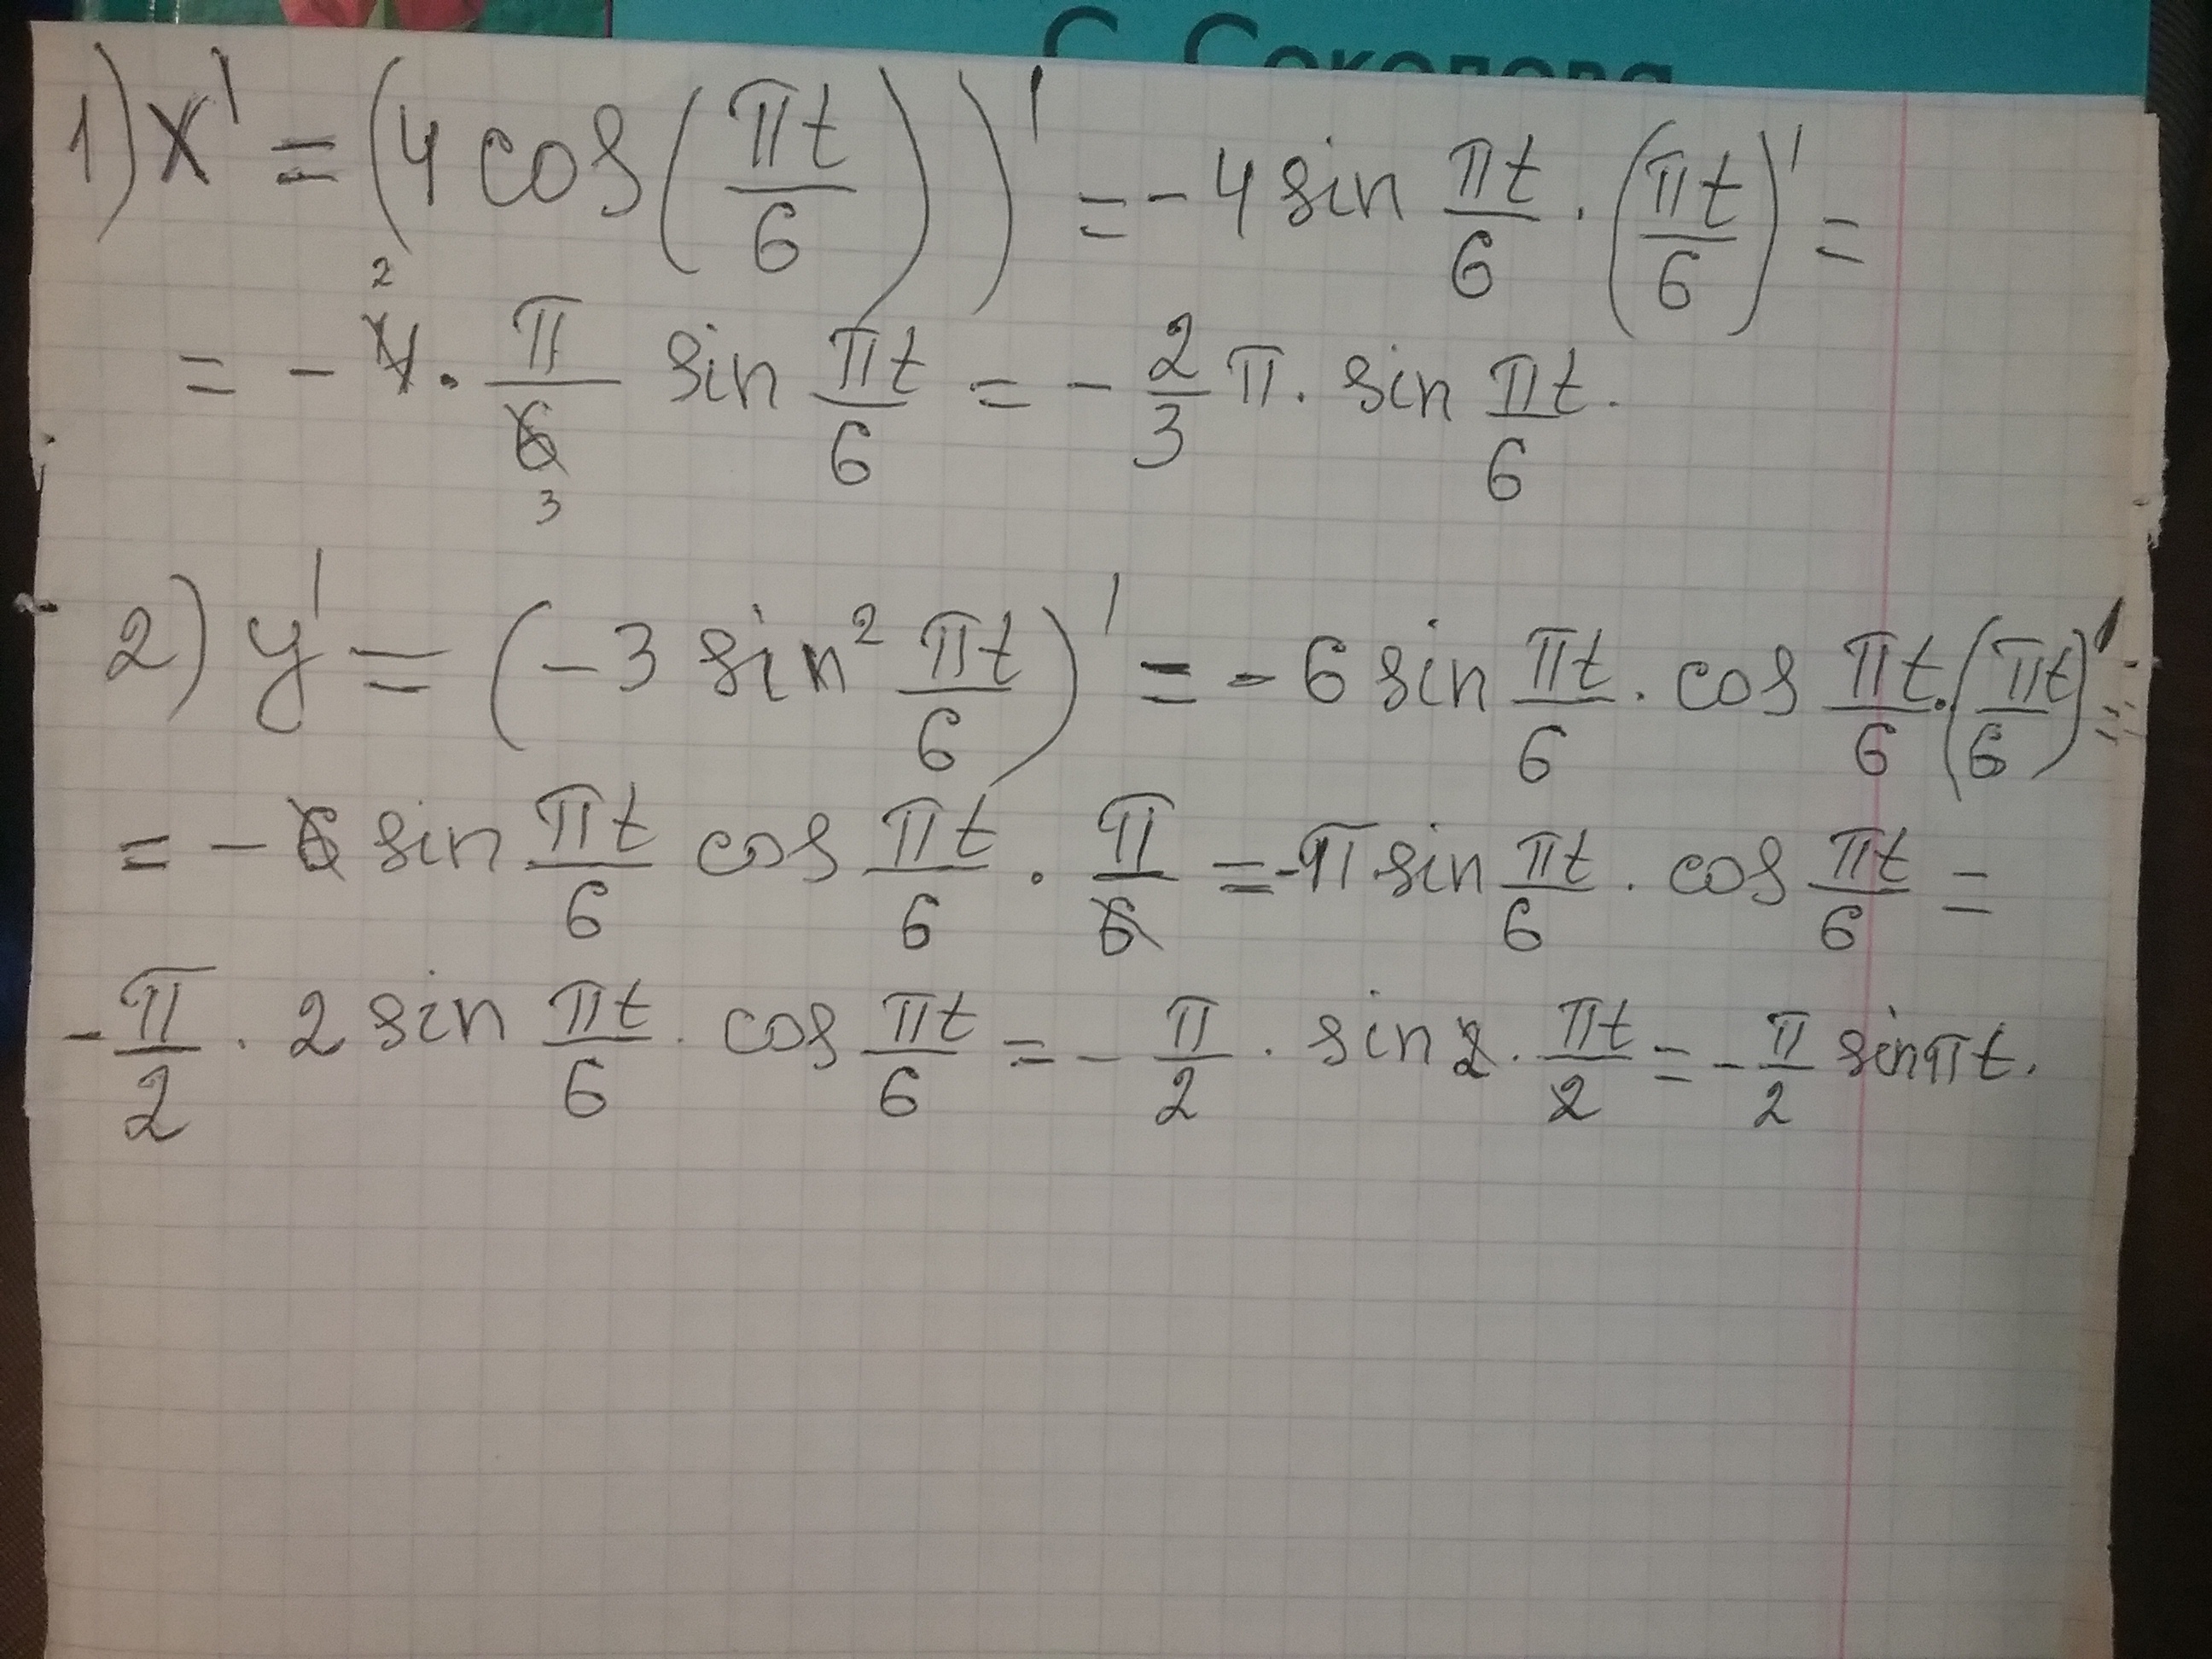 С. Соколова
1) x' = (4 cos(πt/6))' = -4 sin πt/6 · (πt/6)' =
= - 4 · π/6 sin πt/6 = - 2/3 π · sin πt/6.
2) y' = (-3 sin² πt/6)' = -6 sin πt/6 · cos πt/6 · (πt/6)' =
= - 6 sin πt/6 cos πt/6 · π/6 = -π sin πt/6 · cos πt/6 =
- π/2 · 2 sin πt/6 · cos πt/6 = - π/2 · sin 2 · πt/2 = - π/2 sin πt.